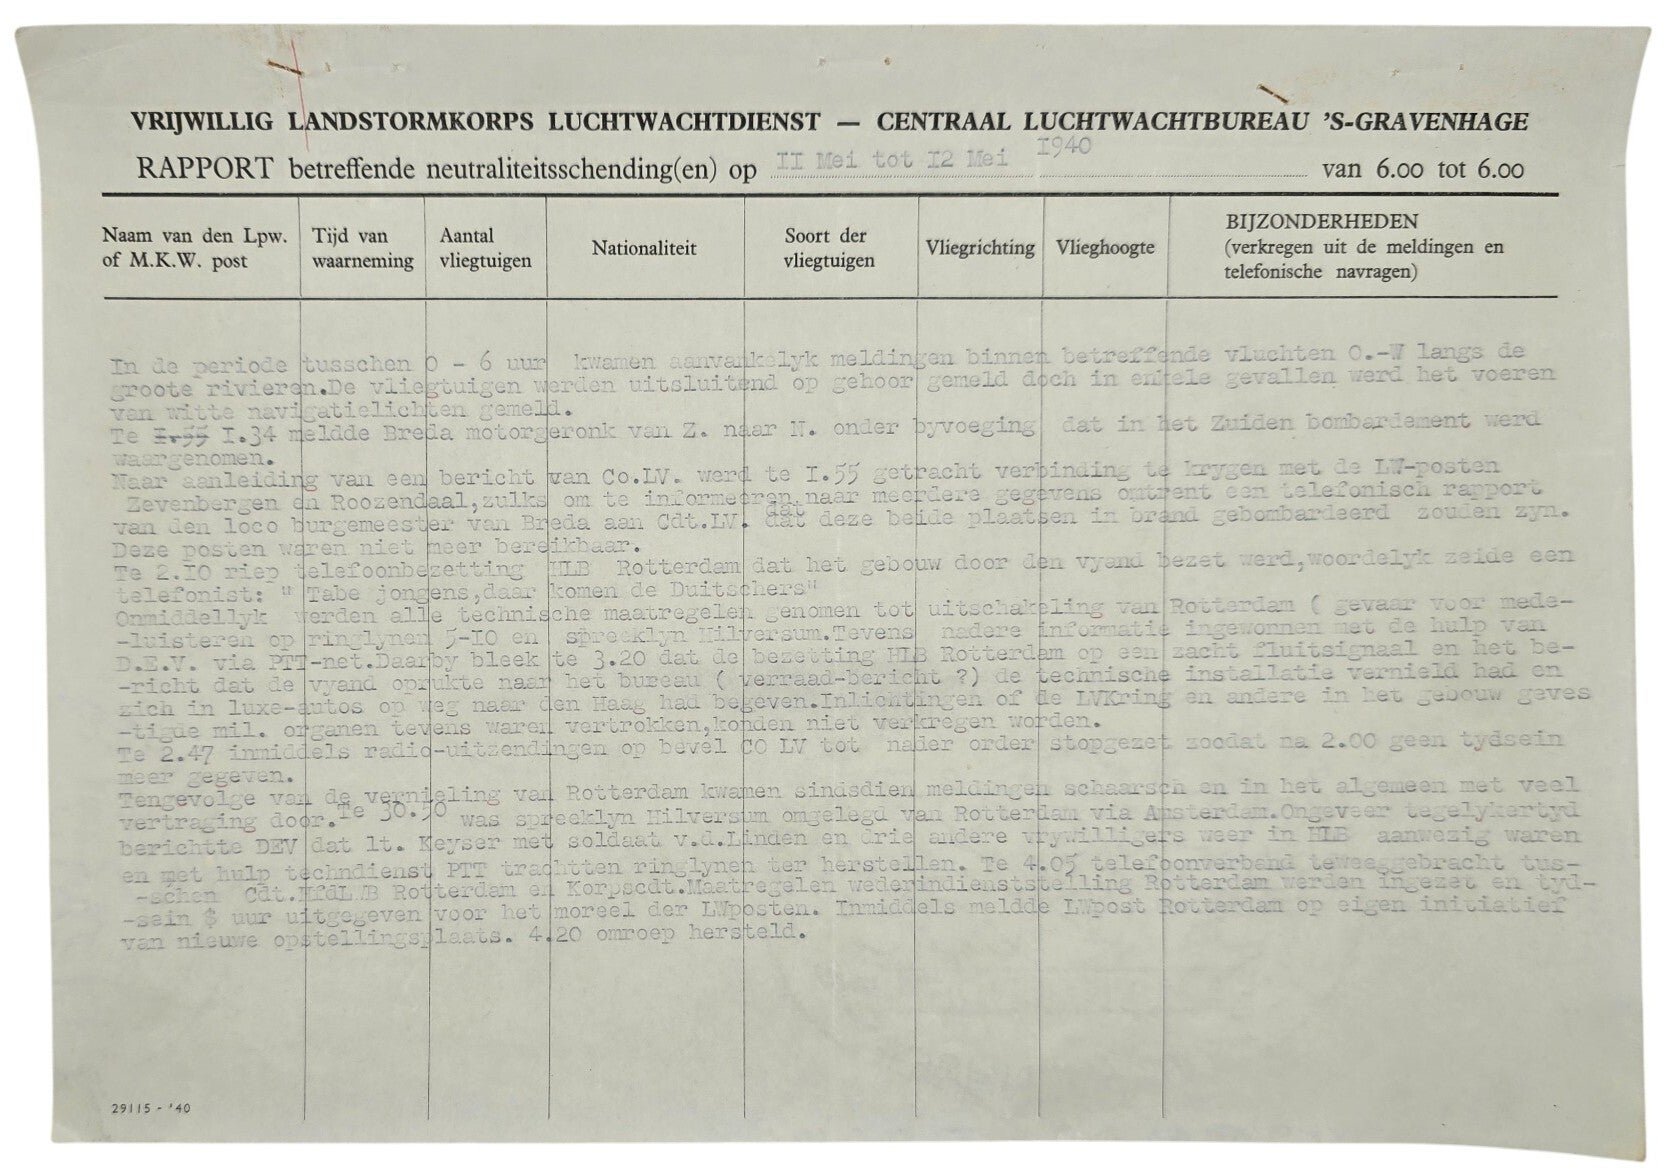 VRIJWILLIG LANDSTORMKORPS LUCHTWACHTDIENST — CENTRAAL LUCHTWACHTBUREAU 'S-GRAVENHAGE
RAPPORT betreffende neutraliteitsschending(en) op II Mei tot I2 Mei I940 van 6.00 tot 6.00
Naam van den Lpw. of M.K.W. post
Tijd van waarneming
Aantal vliegtuigen
Nationaliteit
Soort der vliegtuigen
Vliegrichting
Vlieghoogte
BIJZONDERHEDEN
(verkregen uit de meldingen en
telefonische navragen)
In de periode tusschen 0 - 6 uur kwamen aanvankelyk meldingen binnen betreffende vluchten O.-W langs de
groote rivieren.De vliegtuigen werden uitsluitend op gehoor gemeld doch in enkele gevallen werd het voeren
van witte navigatielichten gemeld.
Te I.55 I.34 meldde Breda motorgeronk van Z. naar N. onder byvoeging dat in het Zuiden bombardement werd
waargenomen.
Naar aanleiding van een bericht van Co.LV. werd te I.55 getracht verbinding te krygen met de LW-posten
Zevenbergen en Roozendaal,zulks om te informeeren naar meerdere gegevens omtrent een telefonisch rapport
van den loco burgemeester van Breda aan Cdt.LV. dat deze beide plaatsen in brand gebombardeerd zouden zyn.
Deze posten waren niet meer bereikbaar.
Te 2.I0 riep telefoonbezetting HLB Rotterdam dat het gebouw door den vyand bezet werd,woordelyk zeide een
telefonist: " Tabe jongens,daar komen de Duitschers"
Onmiddellyk werden alle technische maatregelen genomen tot uitschakeling van Rotterdam ( gevaar voor mede-
-luisteren op ringlynen 5-I0 en spreeklyn Hilversum.Tevens nadere informatie ingewonnen met de hulp van
D.E.V. via PTT-net.Daarby bleek te 3.20 dat de bezetting HLB Rotterdam op een zacht fluitsignaal en het be-
-richt dat de vyand oprukte naar het bureau ( verraad-bericht ?) de technische installatie vernield had en
zich in luxe-autos op weg naar den Haag had begeven.Inlichtingen of de LVKring en andere in het gebouw geves
-tigde mil. organen tevens waren vertrokken,konden niet verkregen worden.
Te 2.47 inmiddels radio-uitzendingen op bevel CO LV tot nader order stopgezet zoodat na 2.00 geen tydsein
meer gegeven.
Tengevolge van de vernieling van Rotterdam kwamen sindsdien meldingen schaarsch en in het algemeen met veel
vertraging door. Te 30.50 was spreeklyn Hilversum omgelegd van Rotterdam via Amsterdam.Ongeveer tegelykertyd
berichtte DEV dat lt. Keyser met soldaat v.d.Linden en drie andere vrywilligers weer in HLB aanwezig waren
en met hulp techndienst PTT trachtten ringlynen ter herstellen. Te 4.05 telefoonverband teweeggebracht tus-
-schen Cdt.HfdLWB Rotterdam en Korpscdt.Maatregelen wederindienststelling Rotterdam werden ingezet en tyd-
-sein $ uur uitgegeven voor het moreel der LWposten. Inmiddels meldde LWpost Rotterdam op eigen initiatief
van nieuwe opstellingsplaats. 4.20 omroep hersteld.
29115 - '40